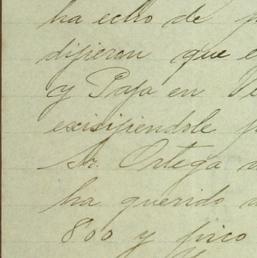 ha echo de
dijieron que e
y Papa en Ve
exisijiendole p
Sr. Ortega
ha querido
800 y pico